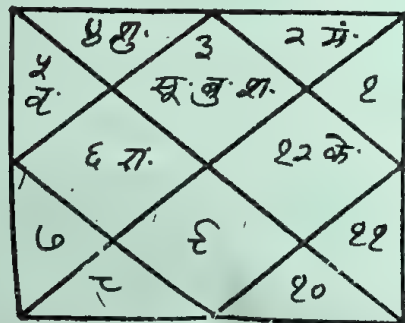 ४ शु. ३ २ मं.
५ सू. बु. श. १
६ रा. १२ के.
७ ९ ११
८ १०